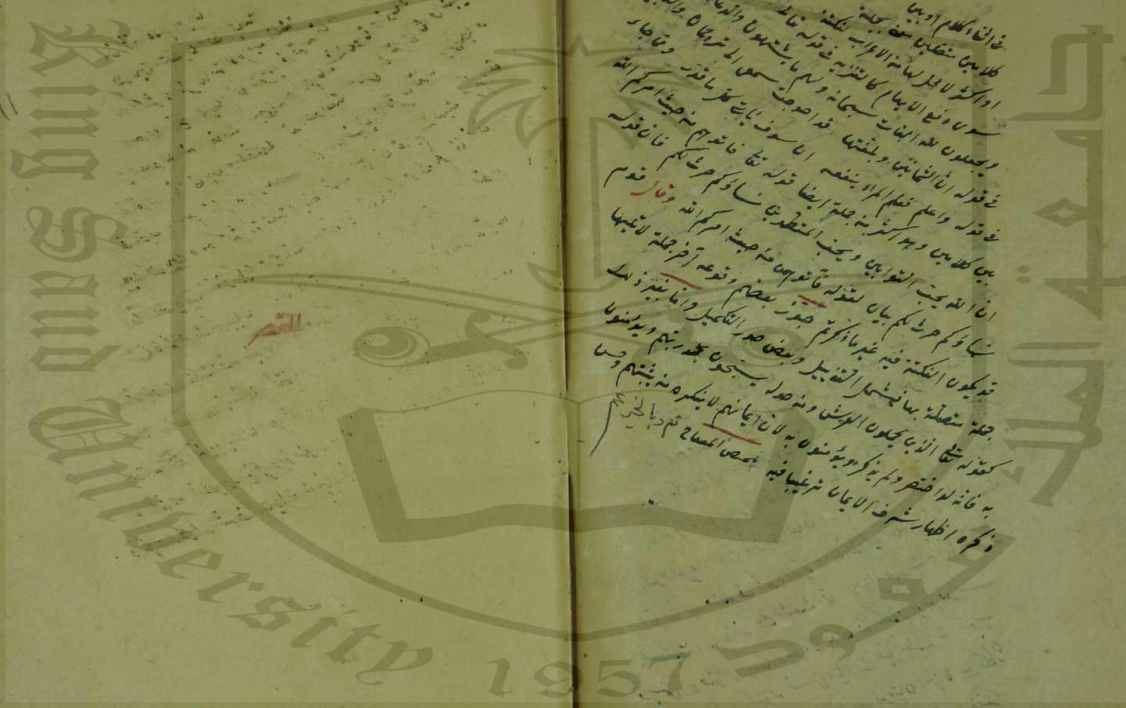 في اثناء كلام او بين
كلامين متصلين معنى بجملة
او اكثر لا محل لها من الاعراب لنكتة
سوى دفع الايهام كالتنزيه في قوله تعالى
ويجعلون لله البنات سبحانه ولهم ما يشتهون والدعاء
في قوله ان الثمانين وبلغتها قد احوجت سمعي الى ترجمان والتنبيه
في قوله واعلم فعلم المرء ينفعه ان سوف يأتي كل ما قدر ومما جاء
بين كلامين وهو اكثر من جملة ايضا قوله تعالى فاتوهن من حيث امركم الله
ان الله يحب التوابين ويحب المتطهرين نساؤكم حرث لكم فان قوله
نساؤكم حرث لكم بيان لقوله فاتوهن من حيث امركم الله وقال قوم
قد يكون النكتة فيه غير ما ذكر ثم جوز بعضهم وقوعه آخر جملة لا تليها
جملة متصلة بها فيشمل التذييل وبعض صور التكميل واما بغير ذلك
كقوله تعالى الذين يحملون العرش ومن حوله يسبحون بحمد ربهم ويؤمنون
به فانه لو اختصر لم يذكر ويؤمنون به لان ايمانهم لا ينكره من يثبتهم وحسن
ذكره اظهار شرف الايمان ترغيبا فيه تم
King Saud University 1957
جامعة الملك سعود